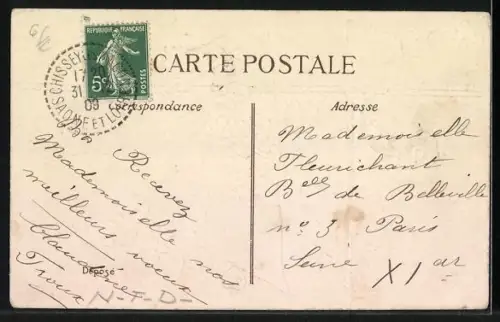 CARTE POSTALE
REPUBLIQUE FRANÇAISE
5c
POSTES
CHISSEY
17
31
09
SAONE-ET-LOIRE
Correspondance
Adresse
Recevez
Mademoiselle nos
meilleurs voeux
Claudine
Troux
Déposé
N-F-D-
Mademoiselle
Fleurichant
Bell de Belleville
no 3 Paris
Seine
XI ar